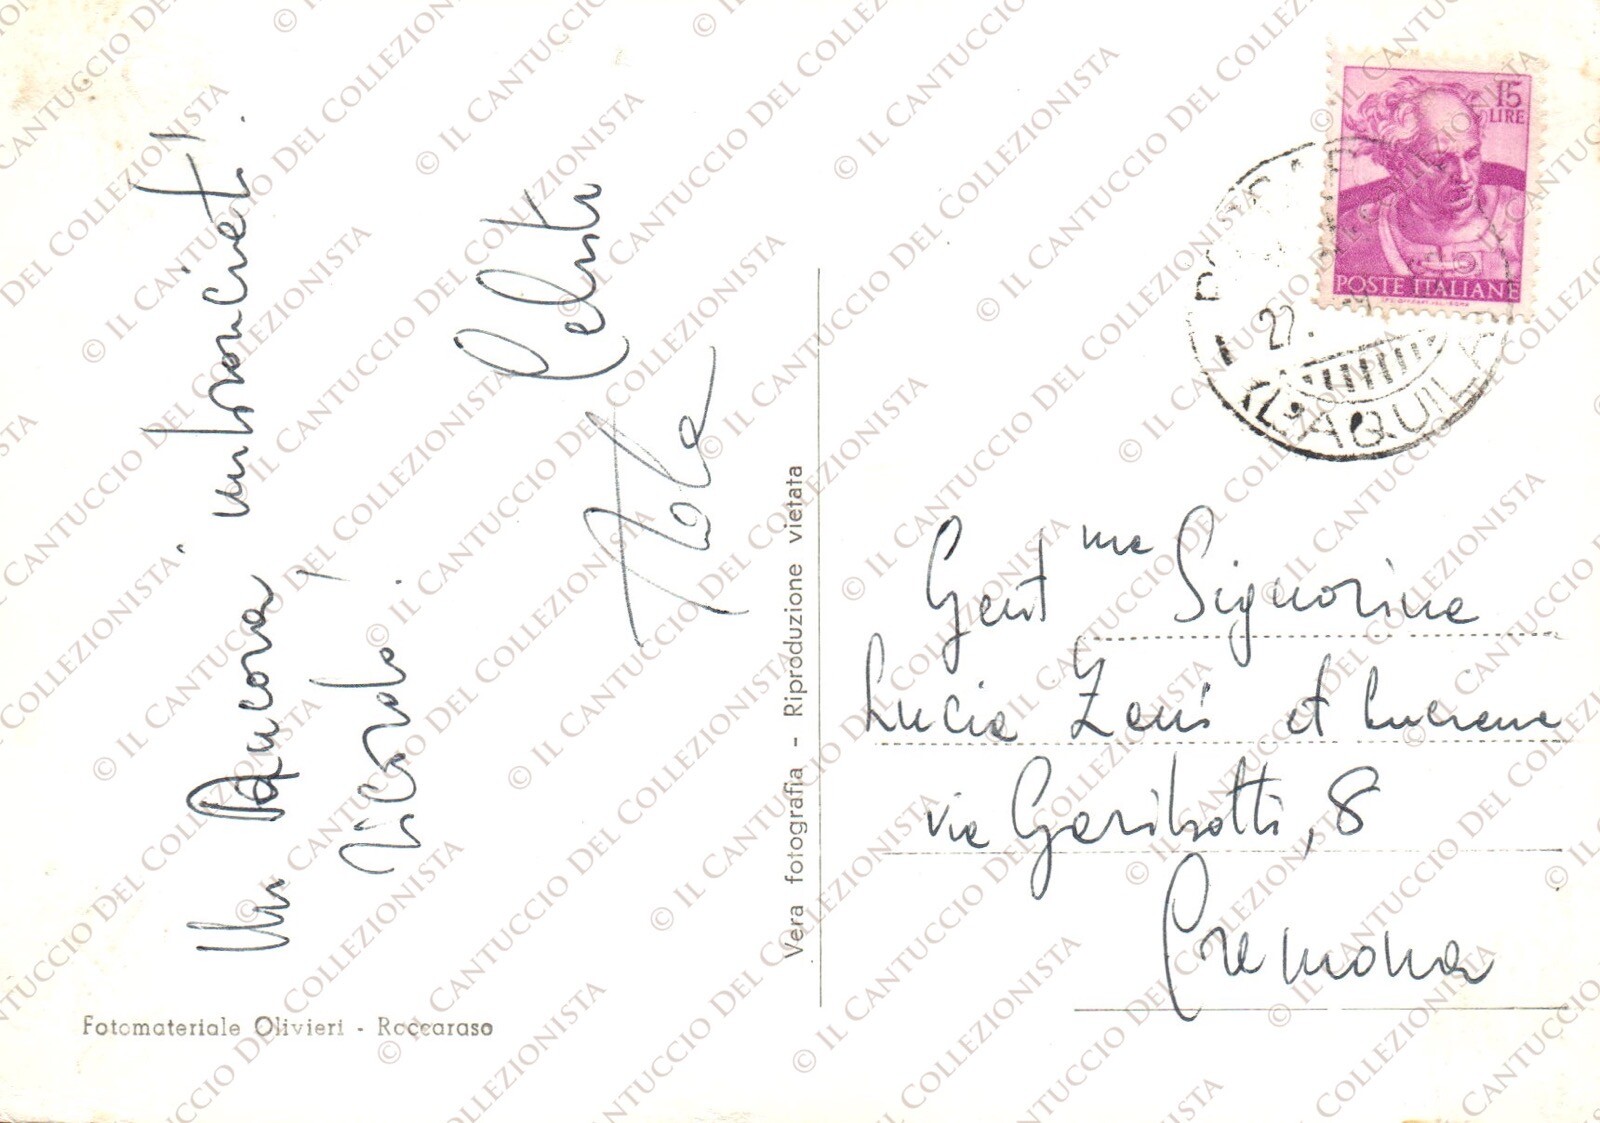 Un Ancora, 
ricordo!
Celeste
Fotomateriale Olivieri - Roccaraso
Vera fotografia - Riproduzione vietata
15
LIRE
POSTE ITALIANE
22.
(L'AQUILA)
Gent.me Signorine
Lucia Zanis et Lucrena
via Garibotti, 8
Cremona
© IL CANTUCCIO DEL COLLEZIONISTA